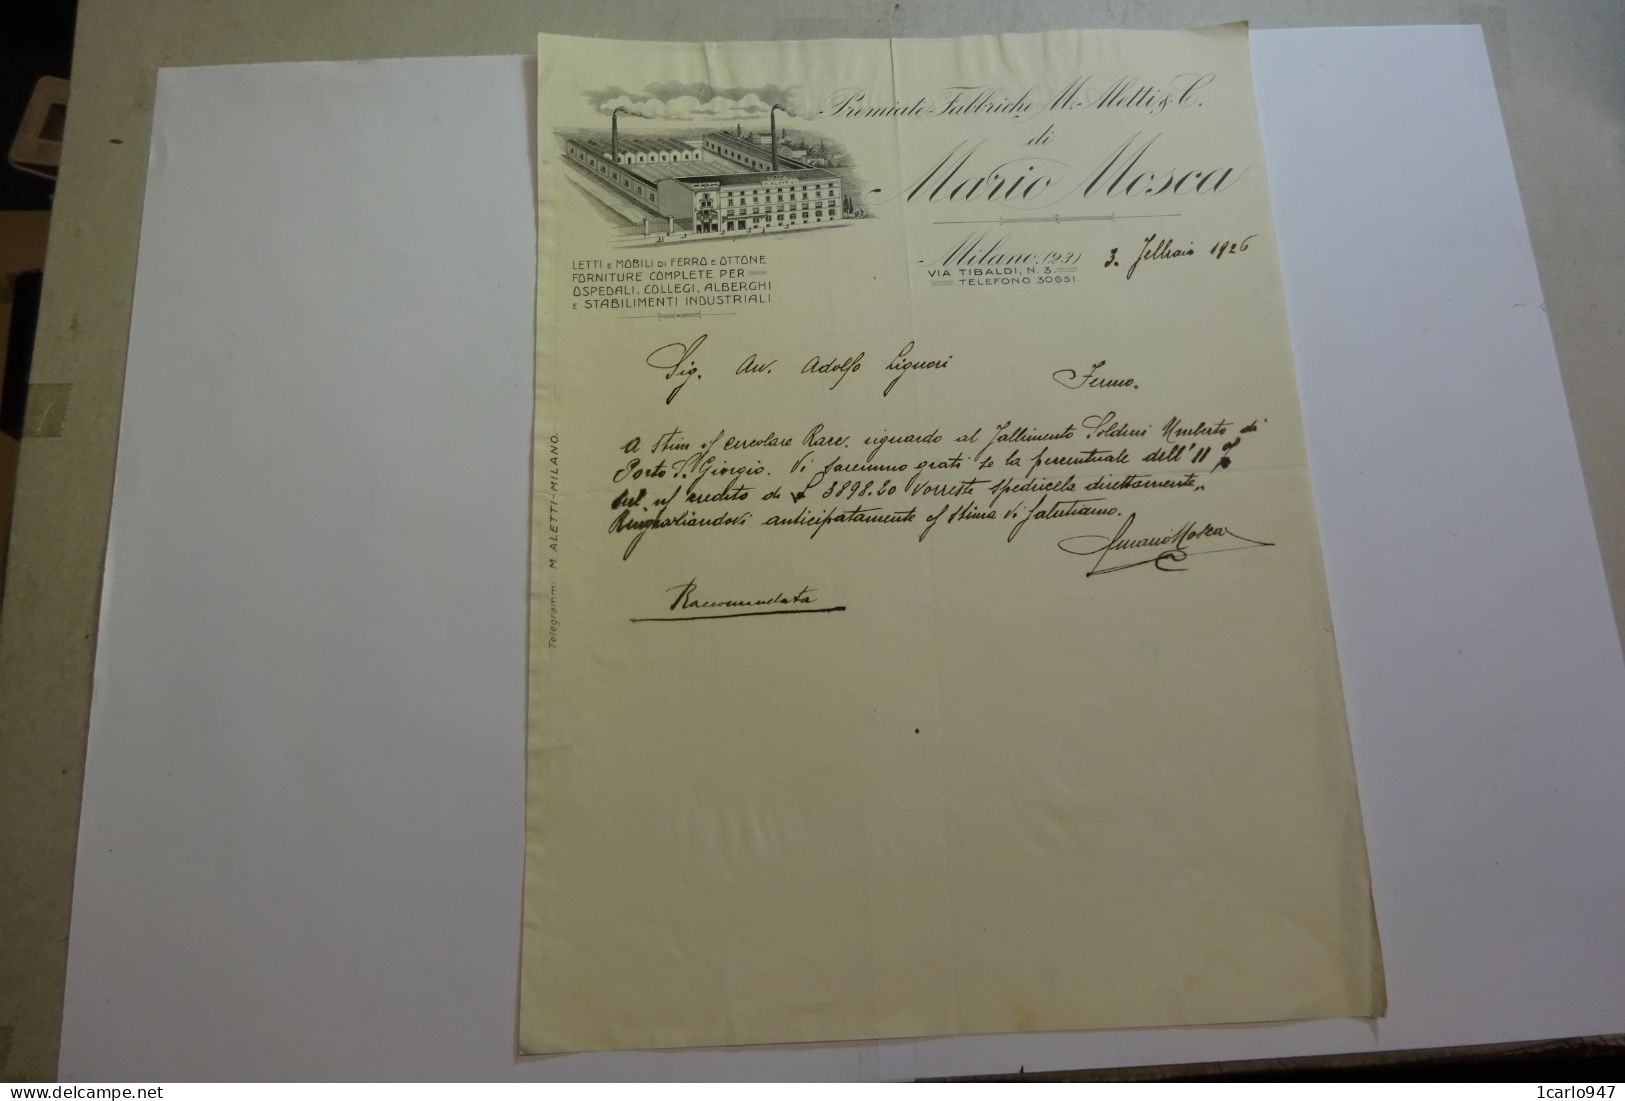 Premiate Fabbriche M. Aletti & C.
di
Mario Mosca
M. ALETTI & C.
LETTI E MOBILI DI FERRO E OTTONE
FORNITURE COMPLETE PER
OSPEDALI, COLLEGI, ALBERGHI
E STABILIMENTI INDUSTRIALI
Milano (23) 3. Febbraio 1926
VIA TIBALDI, N. 3.
TELEFONO 30651.
Sig. Avv. Adolfo Liguori
Fermo.
A stim v/ circolare Racc. riguardo al Fallimento Soldini Umberto di
Porto S. Giorgio. Vi saremmo grati se la percentuale dell'11 %
sul n/ credito di £ 3898.20 vorreste spedircela direttamente.
Ringraziandovi anticipatamente c/ stima Vi salutiamo.
Mario Mosca
Raccomandata
Telegrammi: M. ALETTI-MILANO.
1carlo947